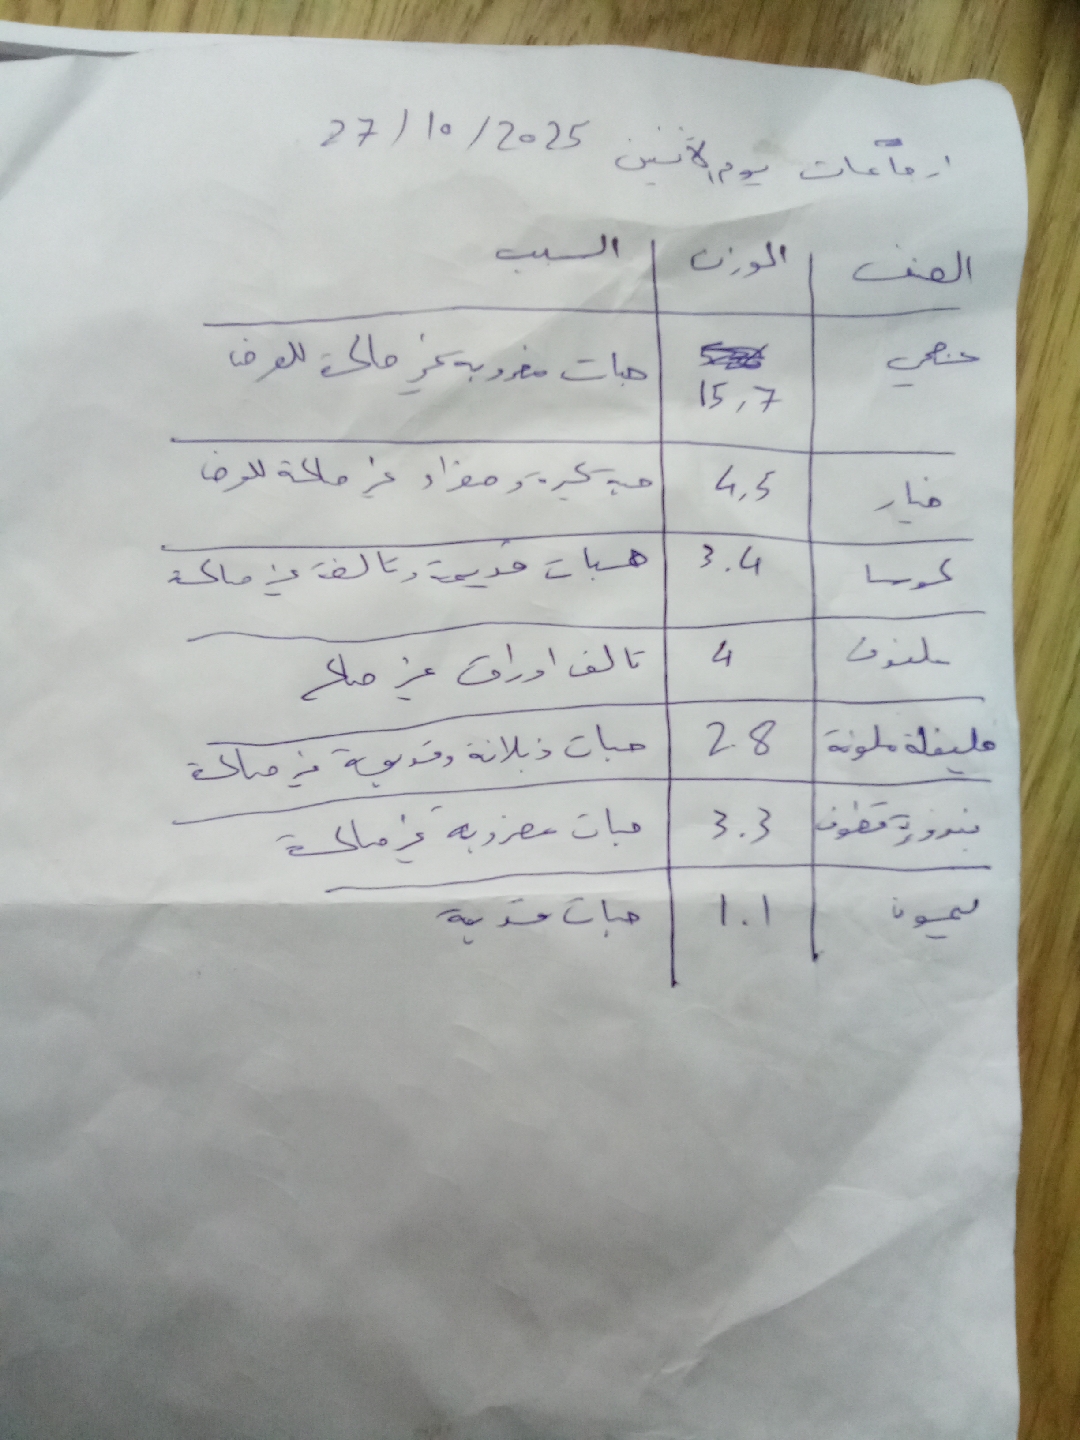 ارجاعات يوم الأثنين 27/10/2025
الصنف الوزن السبب
15,7 حبات مضروبة غير صالحة للعرض
خيار 4,5 حبة كبيرة وصفراء غير صالحة للعرض
كوسا 3.4 حبات قديمة وتالفة غير صالحة
ملفوف 4 تالف اوراق غير صالح
فليفلة ملونة 2.8 حبات ذبلانة وقديمة غير صالحة
بندورة قطوف 3.3 حبات مضروبة غير صالحة
ليمون 1.1 حبات قديمة